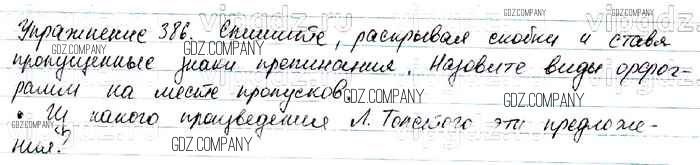 Упражнение 386. Спишите, раскрывая скобки и ставя
пропущенные знаки препинания. Назовите виды орфог-
рамм на месте пропусков.
• Из какого произведения Л. Толстого эти предложе-
ния?
GDZ.COMPANY
GDZ.COMPANY
GDZ.COMPANY
GDZ.COMPANY
GDZ.COMPANY
GDZ.COMPANY
GDZ.COMPANY
GDZ.COMPANY
GDZ.COMPANY
GDZ.COMPANY